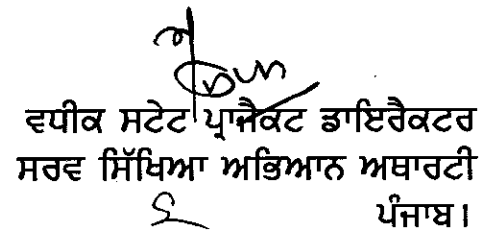 ਵਧੀਕ ਸਟੇਟ ਪ੍ਰਾਜੈਕਟ ਡਾਇਰੈਕਟਰ
ਸਰਵ ਸਿੱਖਿਆ ਅਭਿਆਨ ਅਥਾਰਟੀ
ਪੰਜਾਬ।